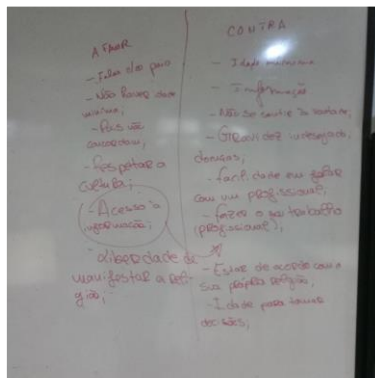 A FAVOR
- Não haver dano
mínimo,
- Pais não
concordam;
- Respeitar a
cultura;
- Acesso à
informação;
- Liberdade de
manifestar a reli-
gião;
CONTRA
- Idade
- Informação
- Não se sentir à vontade,
- Gravidez indesejada,
doenças,
- facilidade em falar
com um profissional,
- fazer o seu trabalho
(profissional);
- Estar de acordo com a
sua própria religião,
- Idade para tomar
decisões;